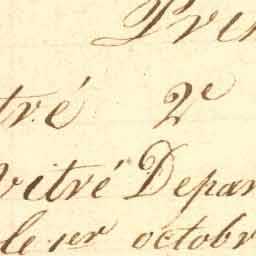 Pri
tré 2e
Vitré Depar
le 1er octobr